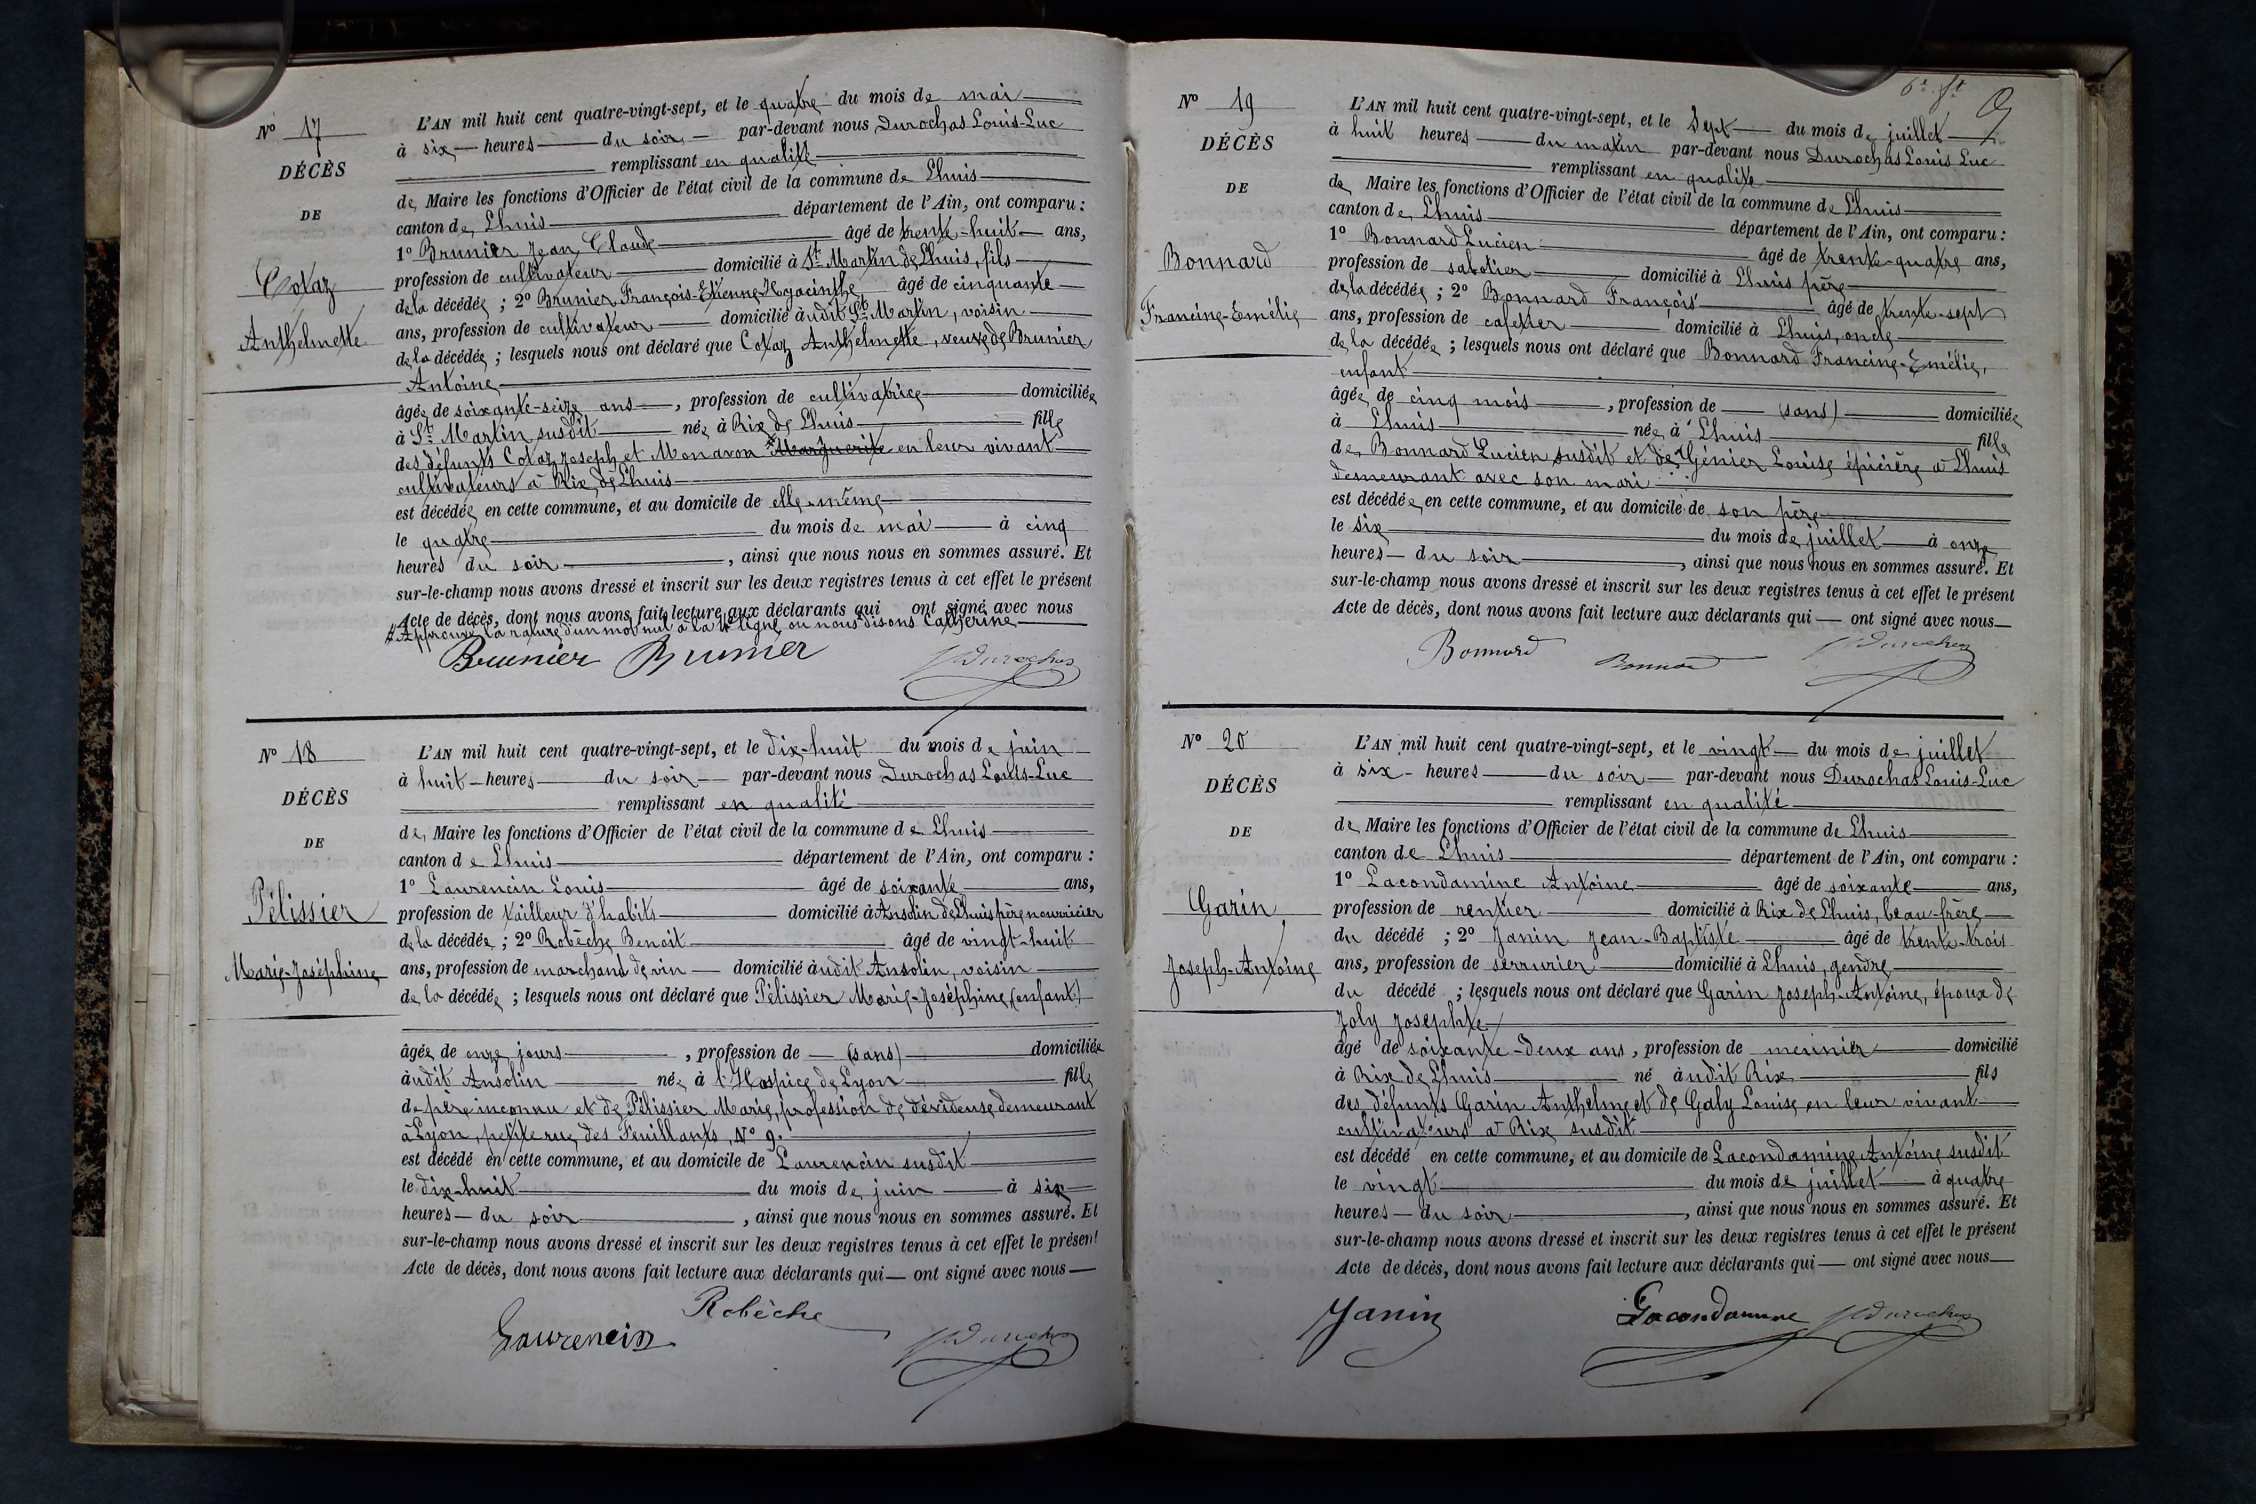 N° 17
DÉCÈS
DE
Cotaz
Anthelmette
L'AN mil huit cent quatre-vingt-sept, et le quatre du mois de mai
à six heures du soir par-devant nous Durochas Louis-Luc
remplissant en qualité
de Maire les fonctions d'Officier de l'état civil de la commune de Lhuis
canton de Lhuis département de l'Ain, ont comparu :
1° Brunier Jean Claude âgé de trente-huit ans,
profession de cultivateur domicilié à St Martin de Lhuis, fils
de la décédée ; 2° Brunier François-Etienne-Hyacinthe âgé de cinquante
ans, profession de cultivateur domicilié à udit St Martin, voisin
de la décédée ; lesquels nous ont déclaré que Cotaz Anthelmette, veuve de Brunier
Antoine
âgée de soixante-seize ans, profession de cultivatrice domiciliée
à St Martin susdit née à Rix de Lhuis fille
des défunts Cotaz Joseph et Monavon Marguerite en leur vivant
cultivateurs à Rix de Lhuis
est décédée en cette commune, et au domicile de elle-même
le quatre du mois de mai à cinq
heures du soir, ainsi que nous nous en sommes assuré. Et
sur-le-champ nous avons dressé et inscrit sur les deux registres tenus à cet effet le présent
Acte de décès, dont nous avons fait lecture aux déclarants qui ont signé avec nous
Approuvé la rature d'un mot nul à la ligne où nous disons Catherine
Brunier Brunier Durochas
N° 18
DÉCÈS
DE
Pélissier
Marie-Joséphine
L'AN mil huit cent quatre-vingt-sept, et le dix-huit du mois de juin
à huit heures du soir par-devant nous Durochas Louis-Luc
remplissant en qualité
de Maire les fonctions d'Officier de l'état civil de la commune de Lhuis
canton de Lhuis département de l'Ain, ont comparu :
1° Laurencin Louis âgé de soixante ans,
profession de tailleur d'habits domicilié à Ansolin de Lhuis père nourricier
de la décédée ; 2° Robèche Benoit âgé de vingt-huit
ans, profession de marchand de vin domicilié à udit Ansolin, voisin
de la décédée ; lesquels nous ont déclaré que Pélissier Marie-Joséphine (enfant)
âgée de onze jours, profession de (sans) domiciliée
à udit Ansolin née à l'Hospice de Lyon fille
de père inconnu et de Pélissier Marie, profession de dévideuse demeurant
à Lyon, petite rue des Feuillants, N° 9.
est décédé en cette commune, et au domicile de Laurencin susdit
le dix-huit du mois de juin à six
heures du soir, ainsi que nous nous en sommes assuré. Et
sur-le-champ nous avons dressé et inscrit sur les deux registres tenus à cet effet le présent
Acte de décès, dont nous avons fait lecture aux déclarants qui ont signé avec nous
Robèche
Laurencin Durochas
N° 19
DÉCÈS
DE
Bonnard
Francine-Emélie
9
L'AN mil huit cent quatre-vingt-sept, et le sept du mois de juillet
à huit heures du matin par-devant nous Durochas Louis Luc
remplissant en qualité
de Maire les fonctions d'Officier de l'état civil de la commune de Lhuis
canton de Lhuis département de l'Ain, ont comparu :
1° Bonnard Lucien âgé de trente-quatre ans,
profession de sabotier domicilié à Lhuis père
de la décédée ; 2° Bonnard François âgé de trente-sept
ans, profession de cafetier domicilié à Lhuis, oncle
de la décédée ; lesquels nous ont déclaré que Bonnard Francine-Emélie,
enfant
âgée de cinq mois, profession de (sans) domiciliée
à Lhuis née à Lhuis fille
de Bonnard Lucien susdit et de Génier Louise épicière à Lhuis
demeurant avec son mari
est décédée en cette commune, et au domicile de son père
le six du mois de juillet à onze
heures du soir, ainsi que nous nous en sommes assuré. Et
sur-le-champ nous avons dressé et inscrit sur les deux registres tenus à cet effet le présent
Acte de décès, dont nous avons fait lecture aux déclarants qui ont signé avec nous
Bonnard Bonnard Durochas
N° 20
DÉCÈS
DE
Garin
Joseph-Antoine
L'AN mil huit cent quatre-vingt-sept, et le vingt du mois de juillet
à six heures du soir par-devant nous Durochas Louis-Luc
remplissant en qualité
de Maire les fonctions d'Officier de l'état civil de la commune de Lhuis
canton de Lhuis département de l'Ain, ont comparu :
1° Lacondamine Antoine âgé de soixante ans,
profession de rentier domicilié à Rix de Lhuis, beau-frère
du décédé ; 2° Janin Jean-Baptiste âgé de trente-trois
ans, profession de serrurier domicilié à Lhuis, gendre
du décédé ; lesquels nous ont déclaré que Garin Joseph-Antoine, époux de
Joly Josephte
âgé de soixante-deux ans, profession de meunier domicilié
à Rix de Lhuis né à udit Rix fils
des défunts Garin Anthelme et de Galy Louise en leur vivant
cultivateurs à Rix susdit
est décédé en cette commune, et au domicile de Lacondamine Antoine susdit
le vingt du mois de juillet à quatre
heures du soir, ainsi que nous nous en sommes assuré. Et
sur-le-champ nous avons dressé et inscrit sur les deux registres tenus à cet effet le présent
Acte de décès, dont nous avons fait lecture aux déclarants qui ont signé avec nous
Janin Lacondamine Durochas